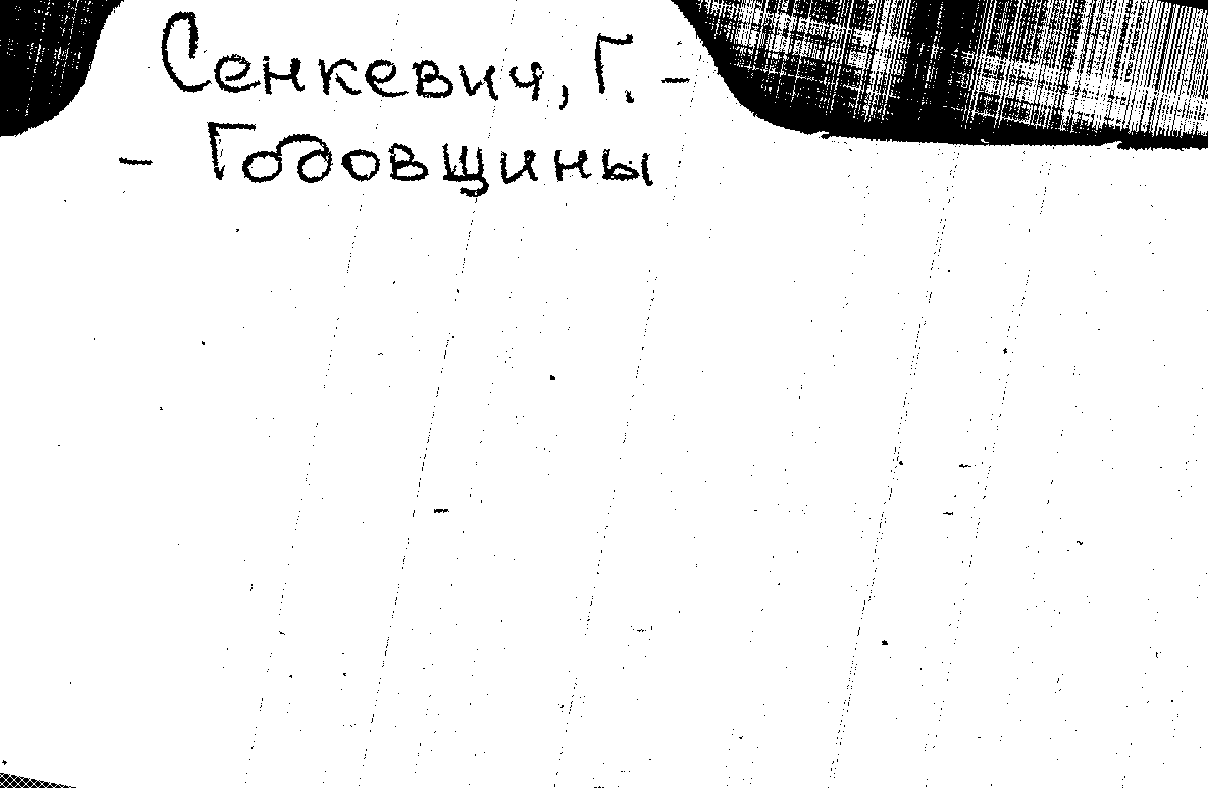 Сенкевич, Г. -
- Годовщины